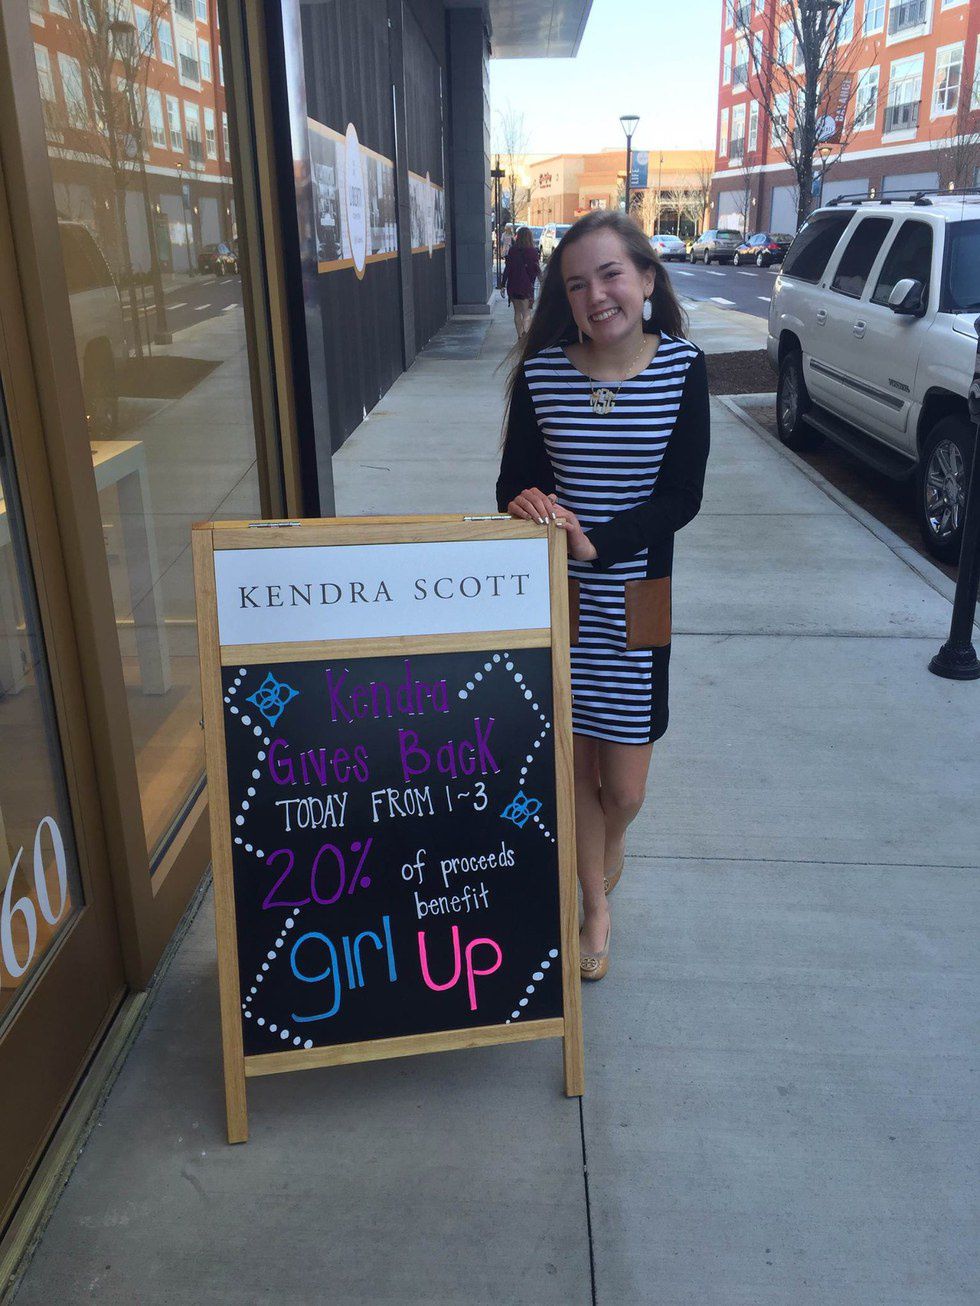 KENDRA SCOTT
Kendra
Gives Back
TODAY FROM 1~3
20% of proceeds
benefit
girl Up
60
LIFE